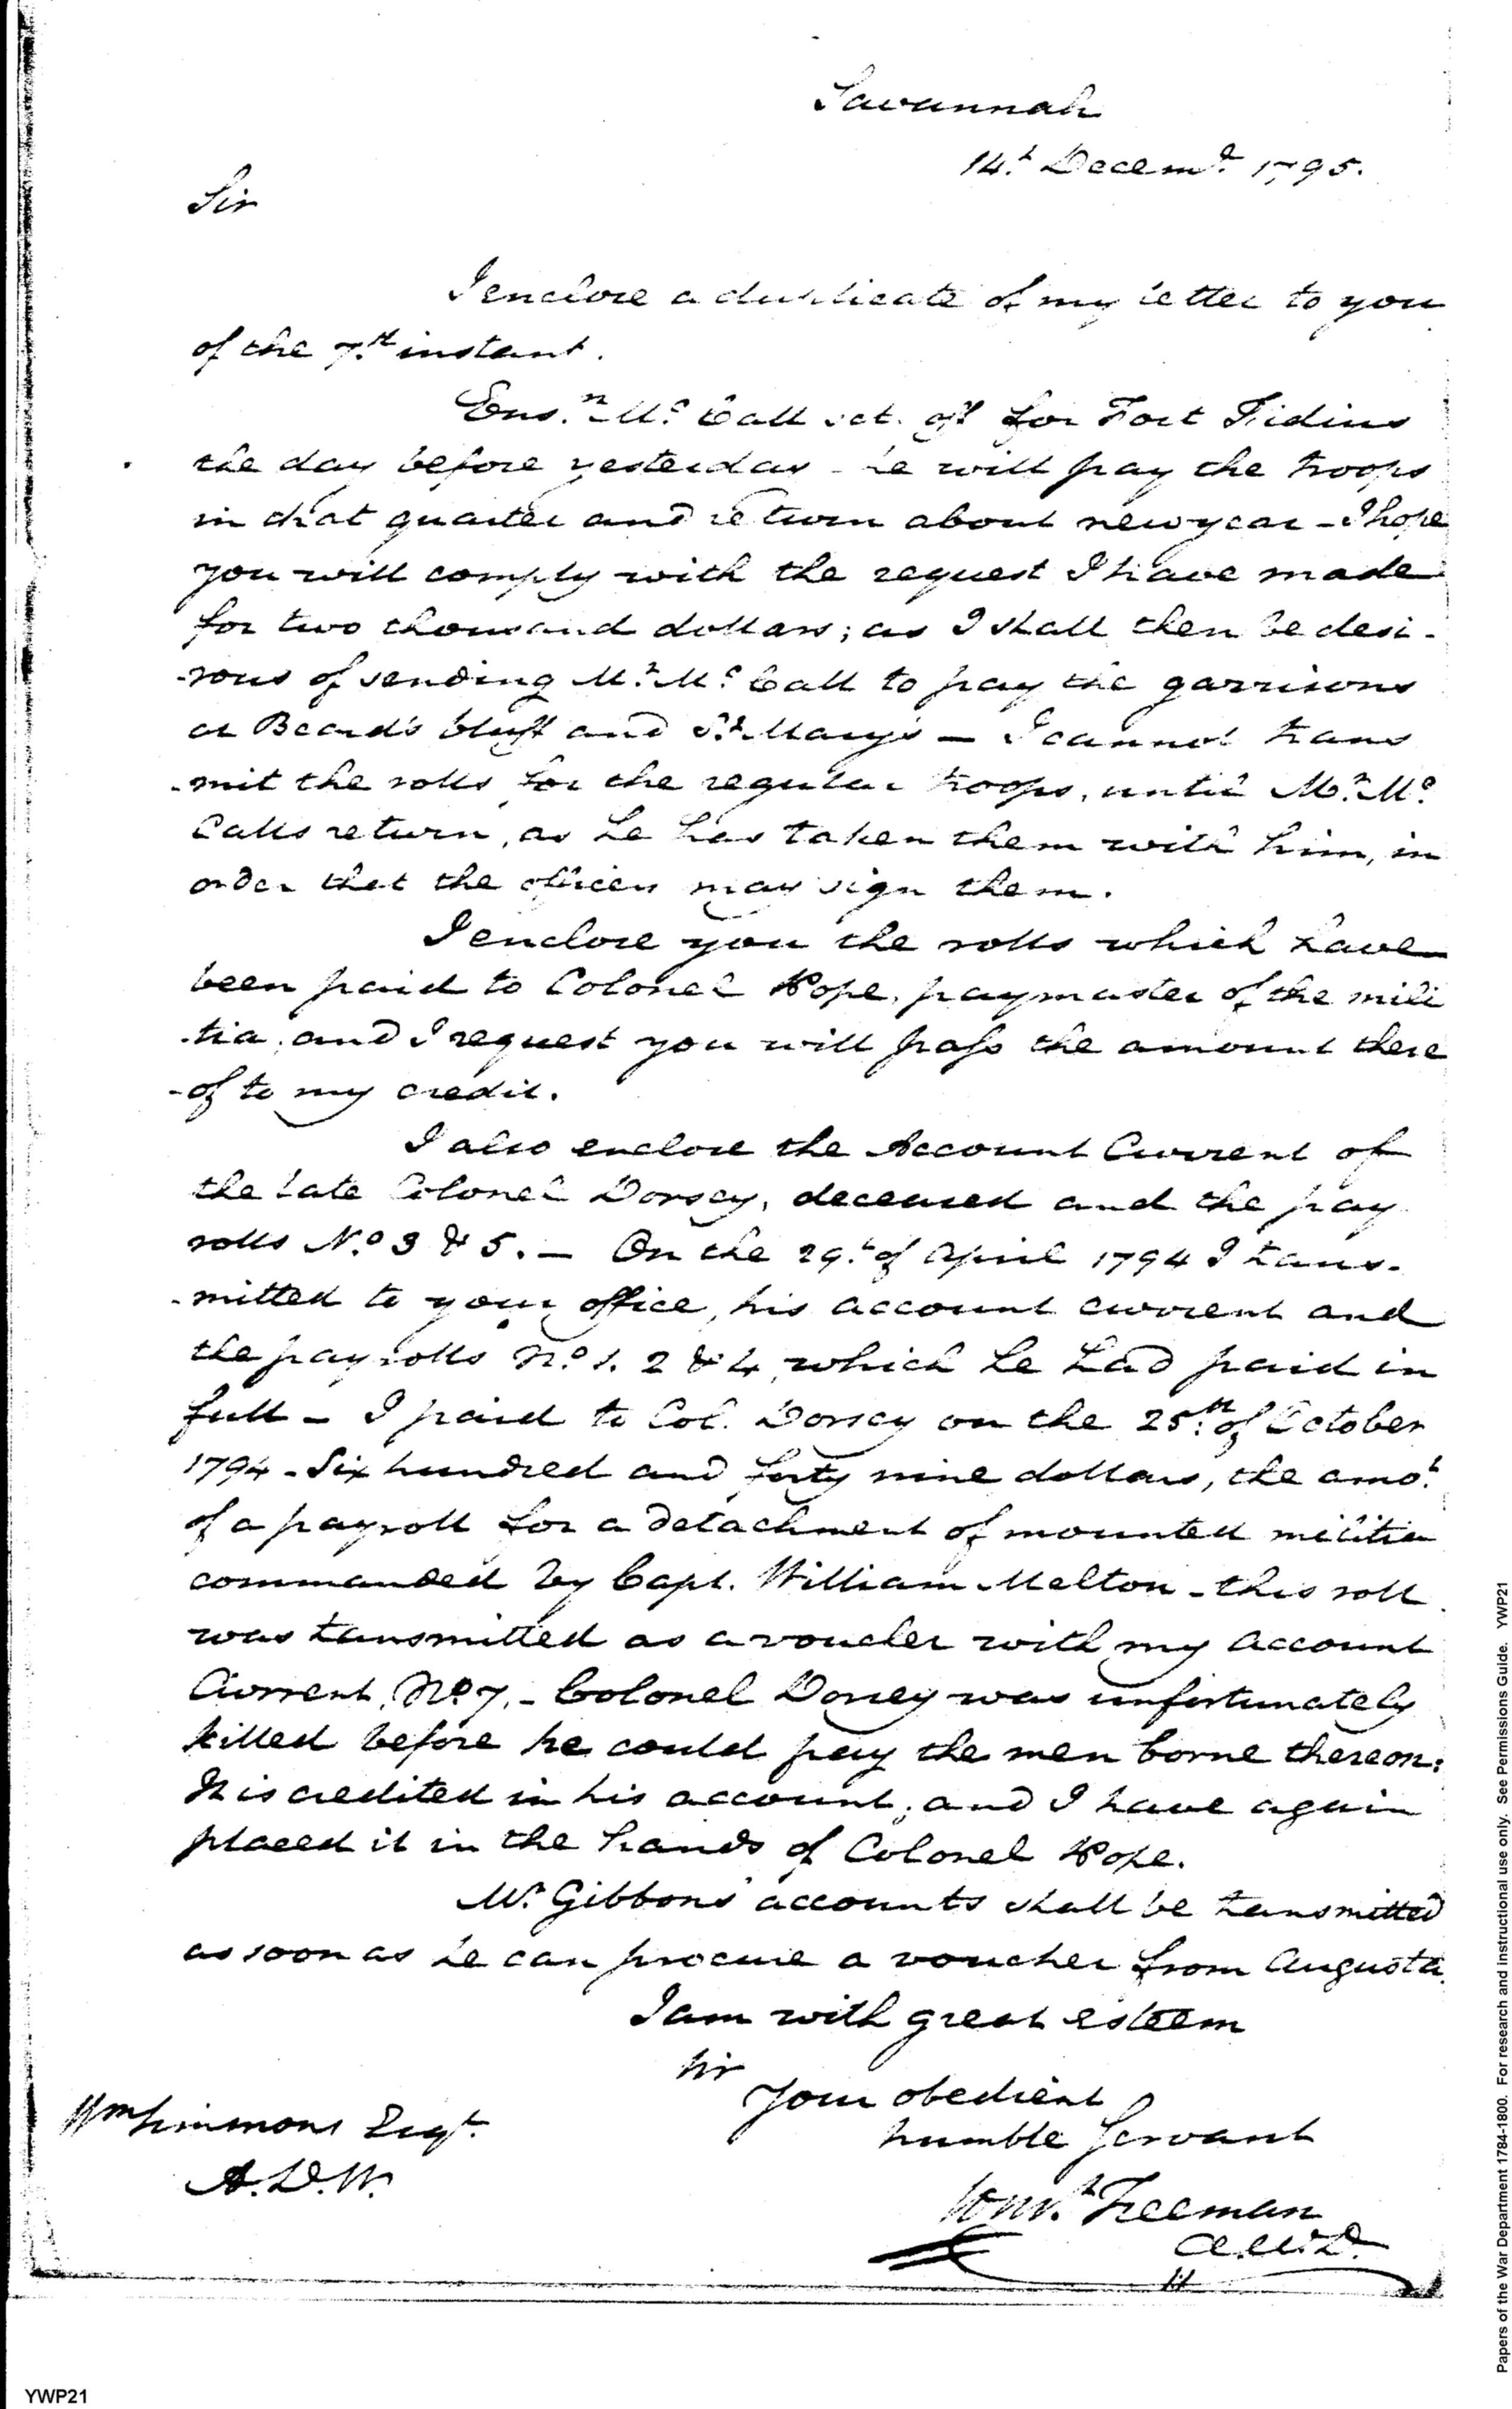 Savannah
14.th Decem.r 1795.
Sir
I enclose a duplicate of my letter to you
of the 7.th instant.
Ens.n Mc. Call set off for Fort Fidius
the day before yesterday - he will pay the troops
in that quarter and return about new year - I hope
you will comply with the request I have made
for two thousand dollars; as I shall then be desi-
-rous of sending Mr. Mc. Call to pay the garrisons
at Beard's bluff and St. Mary's — I cannot trans
-mit the rolls for the regular troops, until Mr. Mc.
Calls return, as he has taken them with him, in
order that the officers may sign them.
I enclose you the rolls which have
been paid to Colonel Pope, paymaster of the mili
-tia, and I request you will pass the amount there
-of to my credit.
I also enclose the Account Current of
the late Colonel Dorsey, deceased and the pay
rolls No. 3 & 5. — On the 29.th of April 1794 I trans-
-mitted to your office, his account current and
the payrolls No. 1. 2 & 4, which he had paid in
full - I paid to Col. Dorsey on the 25.th of October
1794 - Six hundred and forty nine dollars, the amo.t
of a payroll for a detachment of mounted militia
commanded by Capt. William Melton - this roll
was transmitted as a voucher with my account
Current, No. 7. - Colonel Dorsey was unfortunately
killed before he could pay the men borne thereon:
It is credited in his account; and I have again
placed it in the hands of Colonel Pope.
Mr. Gibbons' accounts shall be transmitted
as soon as he can procure a voucher from Augusta.
I am with great esteem
Sir
Your obedient
humble Servant
Wm Simmons Esqr.
A.D.W.
Const. Freeman
A.W.D.
Papers of the War Department 1784-1800. For research and instructional use only. See Permissions Guide. YWP21
YWP21